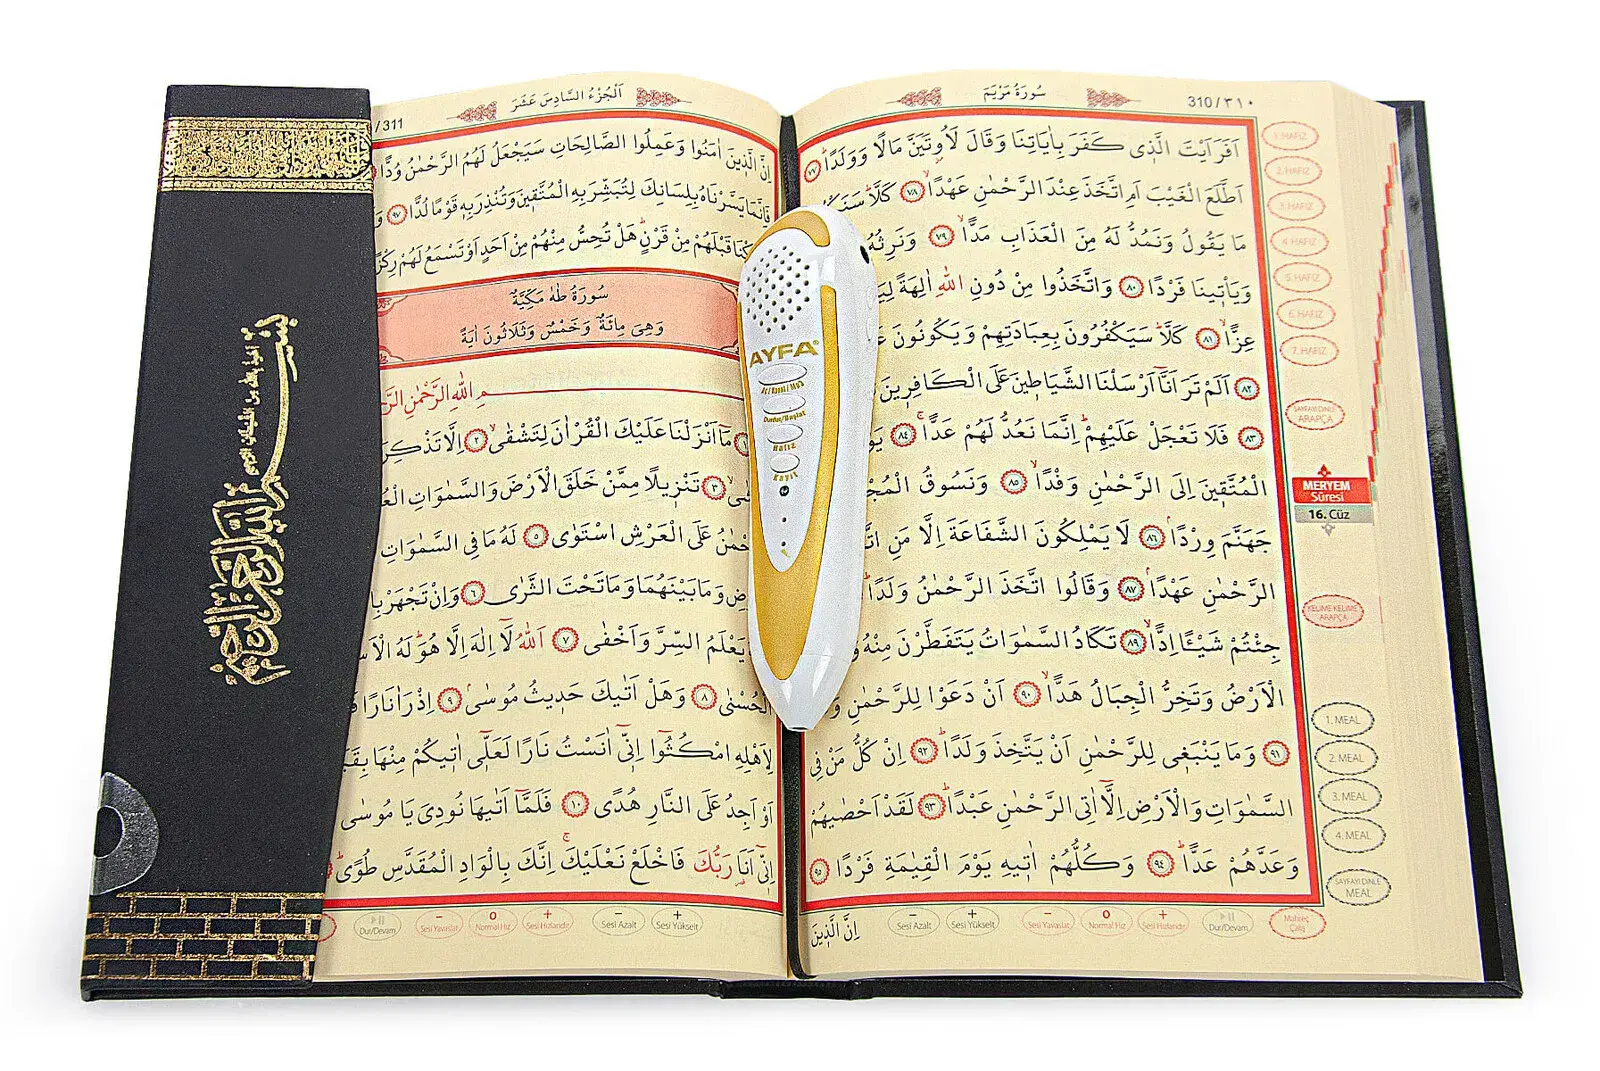 سُورَةُ مَرْيَمَ
310 / ٣١٠
اَفَرَاَيْتَ الَّذ۪ي كَفَرَ بِاٰيَاتِنَا وَقَالَ لَاُو۫تَيَنَّ مَالًا وَوَلَدًاۜ ٧٧
اَطَّلَعَ الْغَيْبَ اَمِ اتَّخَذَ عِنْدَ الرَّحْمٰنِ عَهْدًاۙ ٧٨ كَلَّاۜ
مَا يَقُولُ وَنَمُدُّ لَهُ مِنَ الْعَذَابِ مَدًّاۙ ٧٩ وَنَرِثُهُ
وَيَأْت۪ينَا فَرْدًا ٨٠ وَاتَّخَذُوا مِنْ دُونِ اللّٰهِ اٰلِهَةً
عِزًّاۙ ٨١ كَلَّاۜ سَيَكْفُرُونَ بِعِبَادَتِهِمْ وَيَكُونُونَ
٨٢ اَلَمْ تَرَ اَنَّٓا اَرْسَلْنَا الشَّيَاط۪ينَ عَلَى الْكَافِر۪ينَ
٨٣ فَلَا تَعْجَلْ عَلَيْهِمْۜ اِنَّمَا نَعُدُّ لَهُمْ عَدًّاۚ ٨٤
الْمُتَّق۪ينَ اِلَى الرَّحْمٰنِ وَفْدًاۙ ٨٥ وَنَسُوقُ
جَهَنَّمَ وِرْدًاۢ ٨٦ لَا يَمْلِكُونَ الشَّفَاعَةَ اِلَّا مَنِ
الرَّحْمٰنِ عَهْدًاۢ ٨٧ وَقَالُوا اتَّخَذَ الرَّحْمٰنُ وَلَدًاۜ
جِئْتُمْ شَيْـًٔا اِدًّاۙ ٨٩ تَكَادُ السَّمٰوَاتُ يَتَفَطَّرْنَ مِنْهُ
الْاَرْضُ وَتَخِرُّ الْجِبَالُ هَدًّاۙ ٩٠ اَنْ دَعَوْا لِلرَّحْمٰنِ
٩١ وَمَا يَنْبَغ۪ي لِلرَّحْمٰنِ اَنْ يَتَّخِذَ وَلَدًاۜ ٩٢ اِنْ كُلُّ مَنْ فِي
السَّمٰوَاتِ وَالْاَرْضِ اِلَّٓا اٰتِي الرَّحْمٰنِ عَبْدًاۜ ٩٣ لَقَدْ اَحْصٰيهُمْ
وَعَدَّهُمْ عَدًّاۜ ٩٤ وَكُلُّهُمْ اٰت۪يهِ يَوْمَ الْقِيٰمَةِ فَرْدًا ٩٥
اِنَّ الَّذ۪ينَ
1. HAFIZ
2. HAFIZ
3. HAFIZ
4. HAFIZ
5. HAFIZ
6. HAFIZ
7. HAFIZ
SAYFAYI DİNLE
ARAPÇA
MERYEM
Sûresi
16. Cüz
KELİME KELİME
ARAPÇA
1. MEAL
2. MEAL
3. MEAL
4. MEAL
SAYFAYI DİNLE
MEAL
− Sesi Azalt
+ Sesi Yükselt
− Sesi Yavaşlat
o Normal Hız
+ Sesi Hızlandır
Dur/Devam
Mahreç
Çalış
AYFA®
Hafız
Kayıt
اَلْجُزْءُ السَّادِسَ عَشَرَ
/ 311
اِنَّ الَّذ۪ينَ اٰمَنُوا وَعَمِلُوا الصَّالِحَاتِ سَيَجْعَلُ لَهُمُ الرَّحْمٰنُ وُدًّا
فَاِنَّمَا يَسَّرْنَاهُ بِلِسَانِكَ لِتُبَشِّرَ بِهِ الْمُتَّق۪ينَ وَتُنْذِرَ بِه۪ قَوْمًا لُدًّا ٩٧
قَبْلَهُمْ مِنْ قَرْنٍۜ هَلْ تُحِسُّ مِنْهُمْ مِنْ اَحَدٍ اَوْ تَسْمَعُ لَهُمْ رِكْزًا
سُورَةُ طٰهٰ مَكِّيَّةٌ
وَهِيَ مِائَةٌ وَخَمْسٌ وَثَلَاثُونَ اٰيَةً
اللّٰهِ الرَّحْمٰنِ
مَٓا اَنْزَلْنَا عَلَيْكَ الْقُرْاٰنَ لِتَشْقٰىۙ ٢ اِلَّا
٣ تَنْز۪يلًا مِمَّنْ خَلَقَ الْاَرْضَ وَالسَّمٰوَاتِ
عَلَى الْعَرْشِ اسْتَوٰى ٥ لَهُ مَا فِي السَّمٰوَاتِ
وَمَا بَيْنَهُمَا وَمَا تَحْتَ الثَّرٰى ٦ وَاِنْ تَجْهَرْ
يَعْلَمُ السِّرَّ وَاَخْفٰى ٧ اَللّٰهُ لَٓا اِلٰهَ اِلَّا هُوَۜ لَهُ
الْحُسْنٰى ٨ وَهَلْ اَتٰيكَ حَد۪يثُ مُوسٰىۢ ٩ اِذْ رَاٰ نَارًا
لِاَهْلِهِ امْكُثُٓوا اِنّ۪ٓي اٰنَسْتُ نَارًا لَعَلّ۪ٓي اٰت۪يكُمْ مِنْهَا
اَوْ اَجِدُ عَلَى النَّارِ هُدًى ١٠ فَلَمَّٓا اَتٰيهَا نُودِيَ يَا مُوسٰى
اِنّ۪ٓي اَنَا۬ رَبُّكَ فَاخْلَعْ نَعْلَيْكَۚ اِنَّكَ بِالْوَادِ الْمُقَدَّسِ طُوًىۜ
Dur/Devam
− Sesi Yavaşlat
o Normal Hız
+ Sesi Hızlandır
− Sesi Azalt
+ Sesi Yükselt
بسم الله الرحمن الرحيم